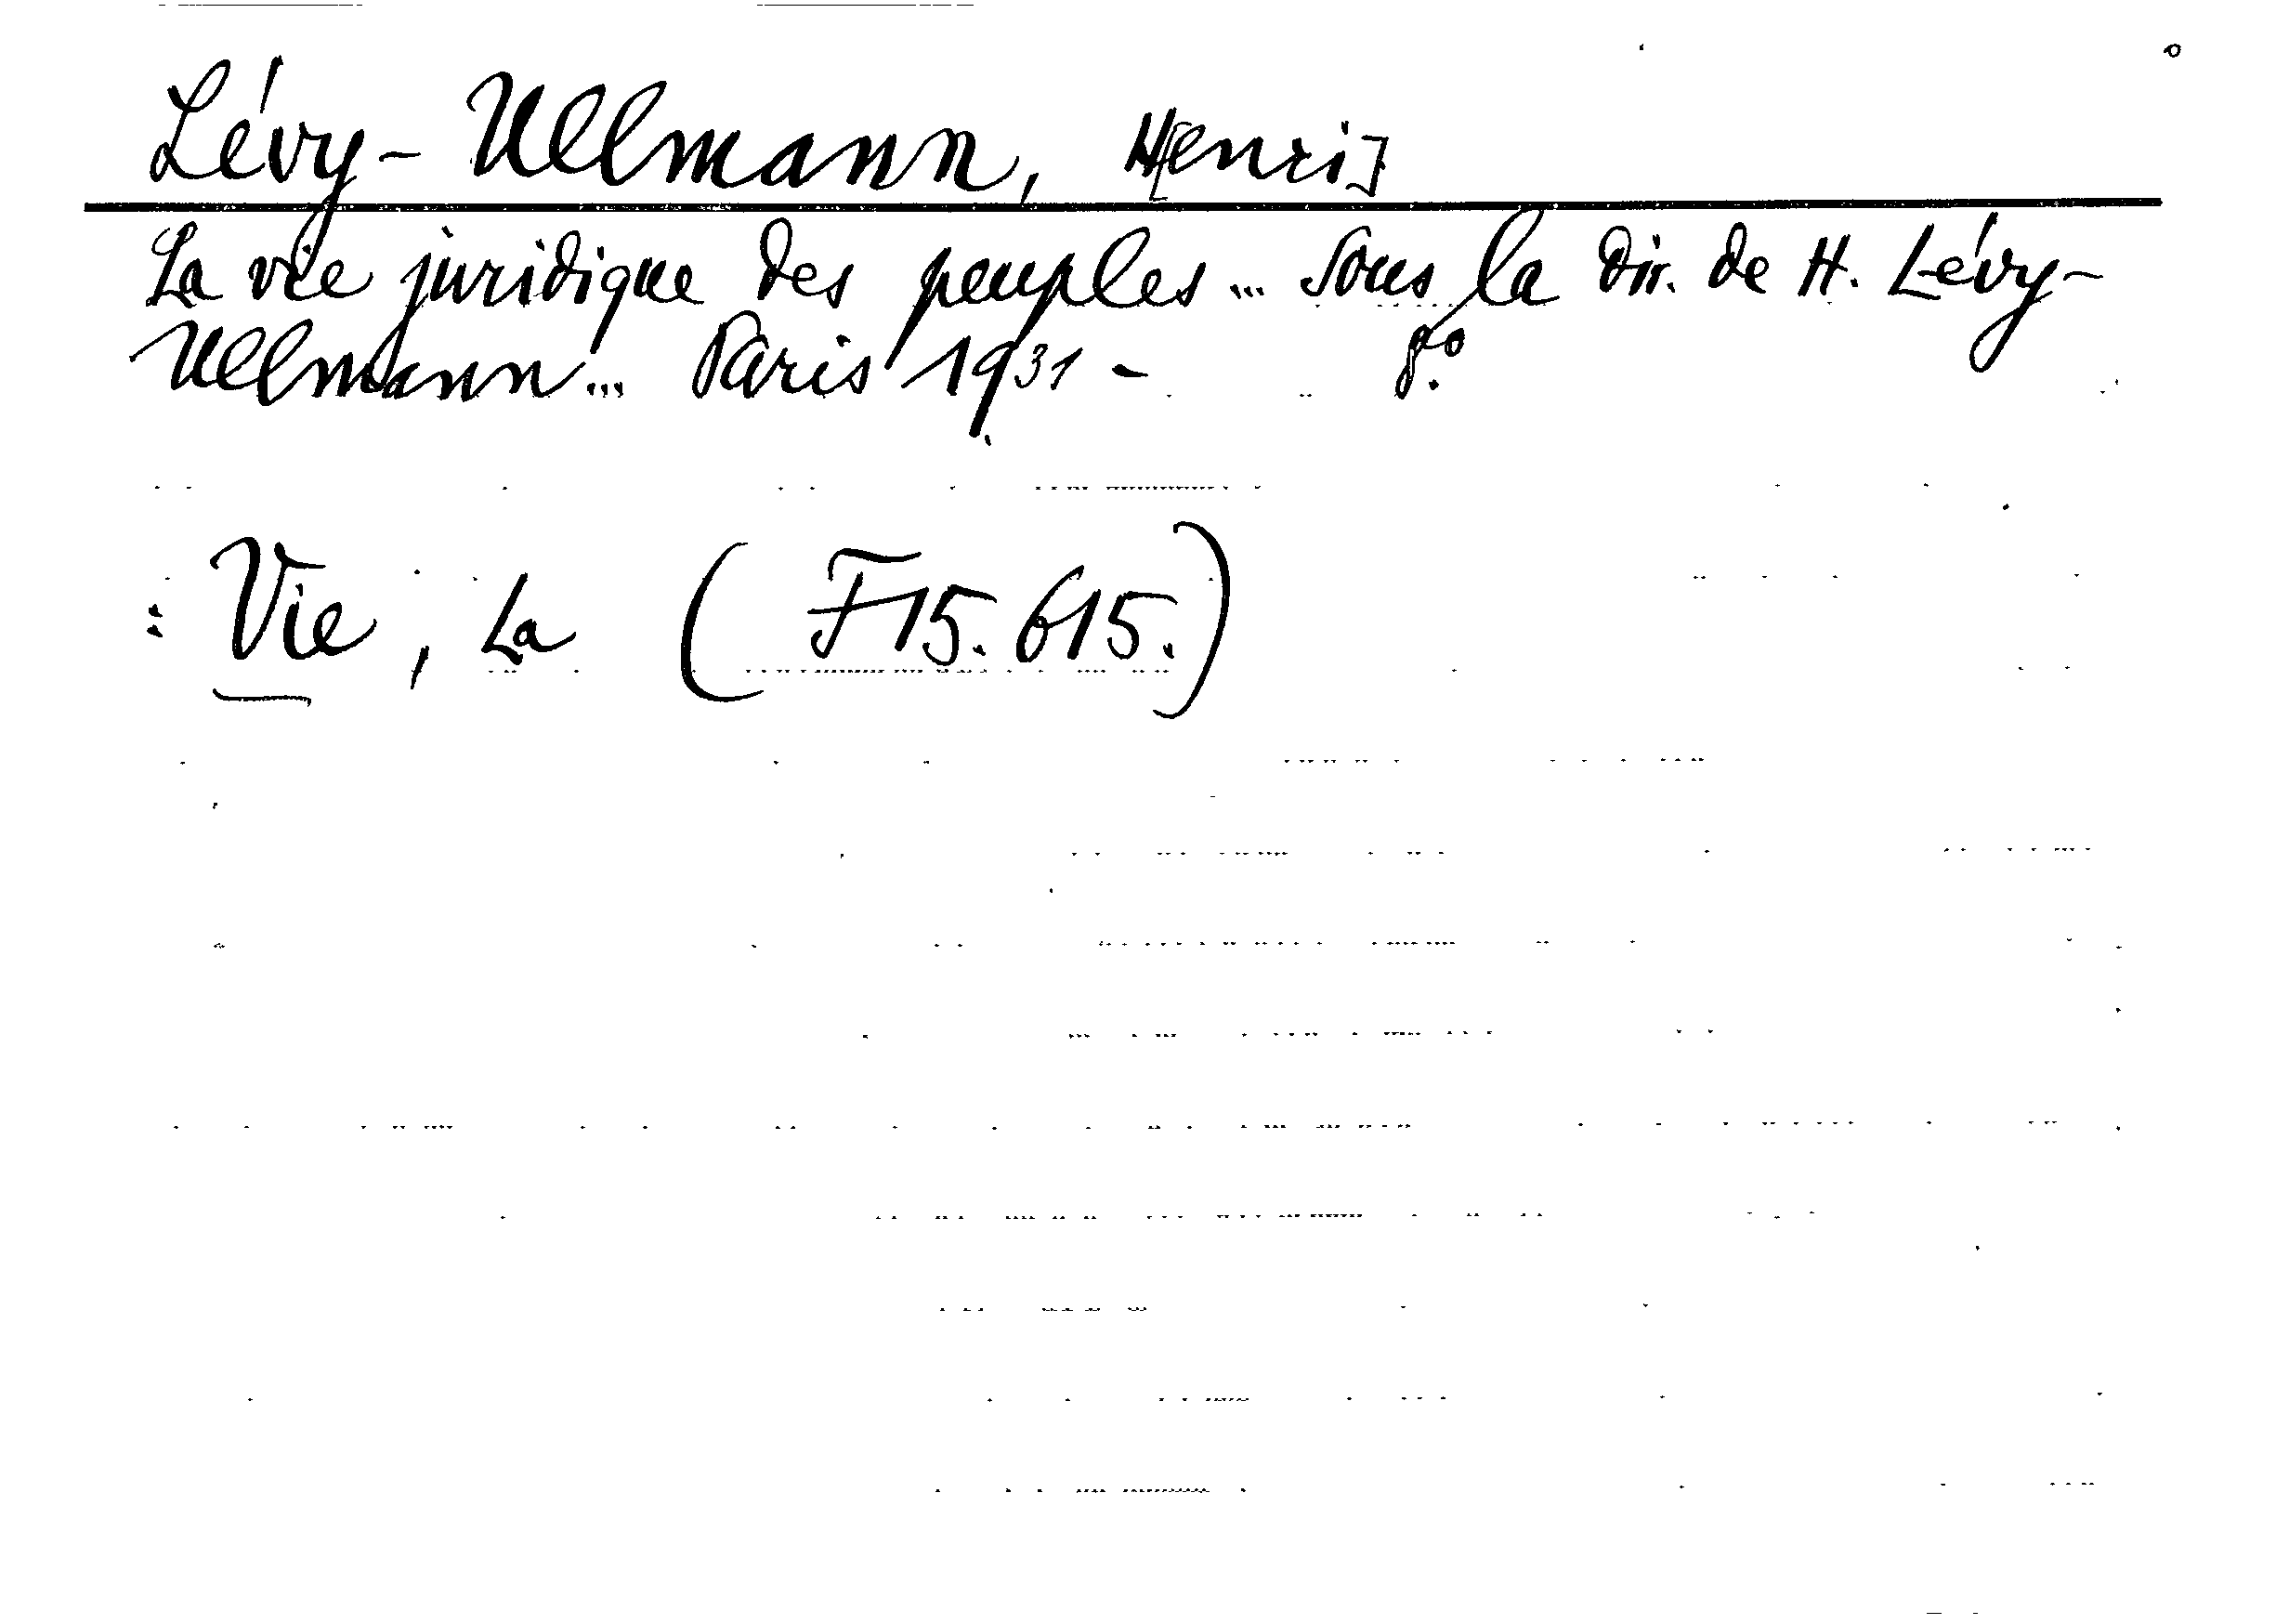 Lévy-Ullmann, H[enri]
La vie juridique des peuples ... Sous la dir. de H. Lévy-
Ullmann ... Paris 1931 - 8.º
: Vie, La ( F 15. 615. )